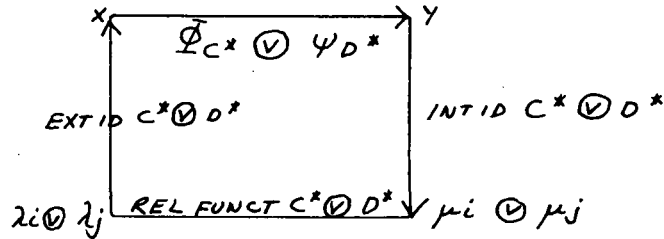 X Y
Φ̄C* ⓥ ΨD*
EXT ID C* ⓥ D* INT ID C* ⓥ D*
λi ⓥ λj REL FUNCT C* ⓥ D* μi ⓥ μj